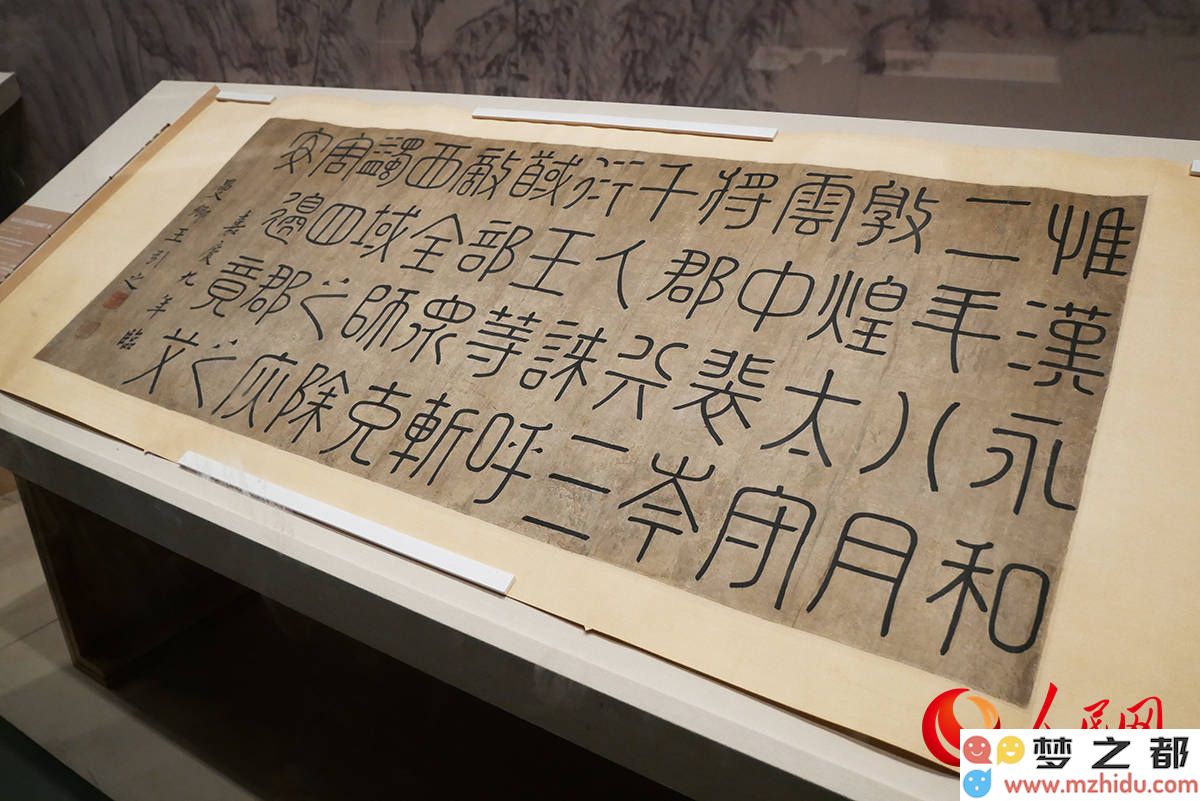 惟漢永和
二年八月
敦煌太守
雲中裴岑
將郡兵三
千人誅呼
衍王等斬
馘部眾克
敵全師除
西域之灾
蠲四郡之
害邊竟艾
安
嘉慶九年臨
曼卿王引之
人民网
梦之都
www.mzhidu.com